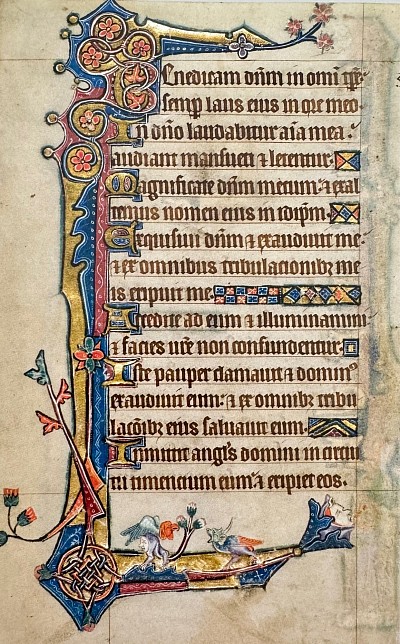 Benedicam dnm in omi tpr
semp laus eius in ore meo.
In dno laudabitur aia mea:
audiant mansueti ⁊ letentur.
Magnificate dnm mecum: ⁊ exal
temus nomen eius in idipm.
Exquisiui dnm ⁊ exaudiuit me:
⁊ ex omnibus tribulacionibz me
is eripuit me.
Accedite ad eum ⁊ illuminamini
⁊ facies ure non confundentur.
Iste pauper clamauit ⁊ dominꝰ
exaudiuit eum: ⁊ ex omnibz tribu
lacoibz eius saluauit eum.
Inmittit angls domini in circui
tu timencium eum: ⁊ eripiet eos.